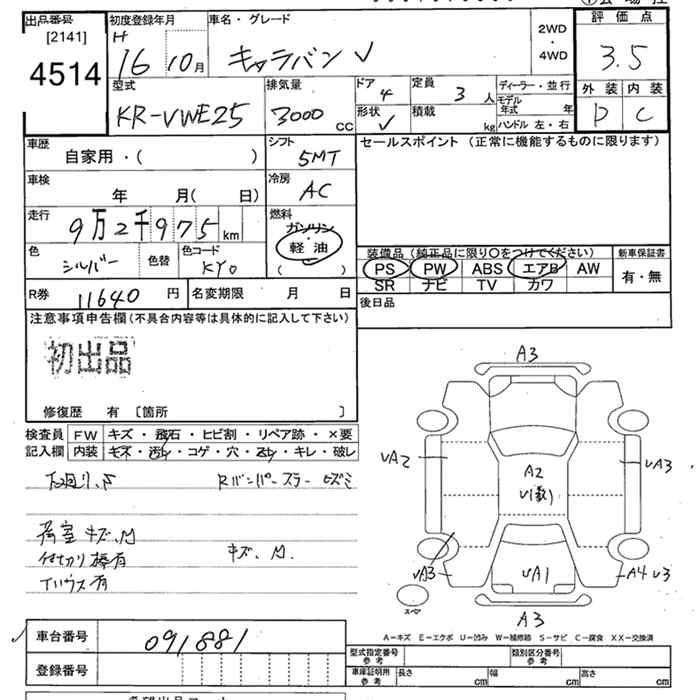 出品番号
[2141]
4514
初度登録年月
H
16 10月
車名・グレード
キャラバン
2WD
・
4WD
評価点
3.5
外装 内装
D C
型式
KR-VWE25
排気量
3000
CC
ドア
4
形状
定員
3人
積載
kg
ディーラー・並行
モデル
年式 年
ハンドル 左・右
車歴
自家用・( )
シフト
5MT
セールスポイント (正常に機能するものに限ります)
車検
年 月( 日)
冷房
AC
走行
9万2千975km
燃料
ガソリン
・
軽・油
( )
色
シルバー
色替
色コード
KY0
装備品 (純正品に限り○をつけてください)
PS PW ABS エアB AW
SR ナビ TV カワ
新車保証書
有・無
R券 11640 円
名変期限 月 日
後日品
注意事項申告欄(不具合内容等は具体的に記入して下さい)
初出品
修復歴 有 〔箇所 〕
検査員
記入欄
FW キズ・飛石・ヒビ割・リペア跡・×要
内装 キズ・汚レ・コゲ・穴・スレ・キレ・破レ
Rバンパーステー ユガミ
荷室 キズ、凹
仕切り棒有
キズ、凹
A3
UA2
A2
UA3
UA3
UA1
A4 U3
スペア
A3
A―キズ E―エクボ U―凹み W―補修跡 S―サビ C―腐食 XX―交換済
車台番号
091881
登録番号
型式指定番号
参考
類別区分番号
参考
車庫証明用
参考
長さ cm
幅 cm
高さ cm